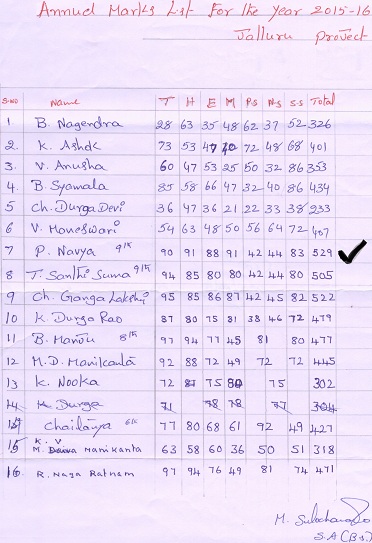 Annual Marks List For the Year 2015-16
Jalluru project
S.NO Name T H E M P.S N.S S.S Total
1 B. Nagendra 28 63 35 48 62 37 52 326
2. K. Ashok 73 53 47 40 72 48 68 401
3. V. Anusha 60 47 53 25 50 32 86 353
4. B. Syamala 85 58 66 47 32 40 86 434
5 Ch. Durga Devi 36 47 36 21 22 33 38 233
6 V. Maneswari 54 63 48 50 56 64 72 407
7 P. Navya 9th 90 91 88 91 42 44 83 529
8 T. Santhi Suma 9th 94 85 80 80 42 44 80 505
9 Ch. Ganga Lakshmi 95 85 86 87 42 45 82 522
10 K. Durga Rao 87 80 75 81 38 46 72 479
11 B. Mandu 8th 97 94 77 45 81 80 477
12 M.D. Manikanta 92 88 72 49 72 72 445
13 K. Nooka 72 87 75 80 75 302
14 K. Durga 71 78 78 77 304
Chaitanya 6th 77 80 68 61 92 49 427
15 K. V
M. Manikanta 63 58 60 36 50 51 318
16. R. Naga Ratnam 97 94 76 49 81 74 471
M.
S.A (B.S.)